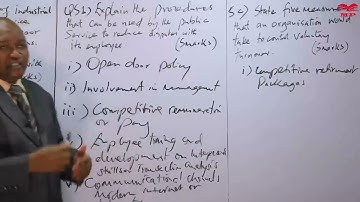 f industrial
Q52) Explain the procedures
that can be used by the public
Service to reduce disputes with
its employees (5marks)
i) Open door policy
ii) Involvement in management
iii) Competitive remuneration
or pay
Employee training and
development on
skills on transaction analysis
Communication channels
modern internet or
5c) State five measures
that an organisation would
take to control voluntary
Turnover. (5marks)
i) Competitive retirement
Packages